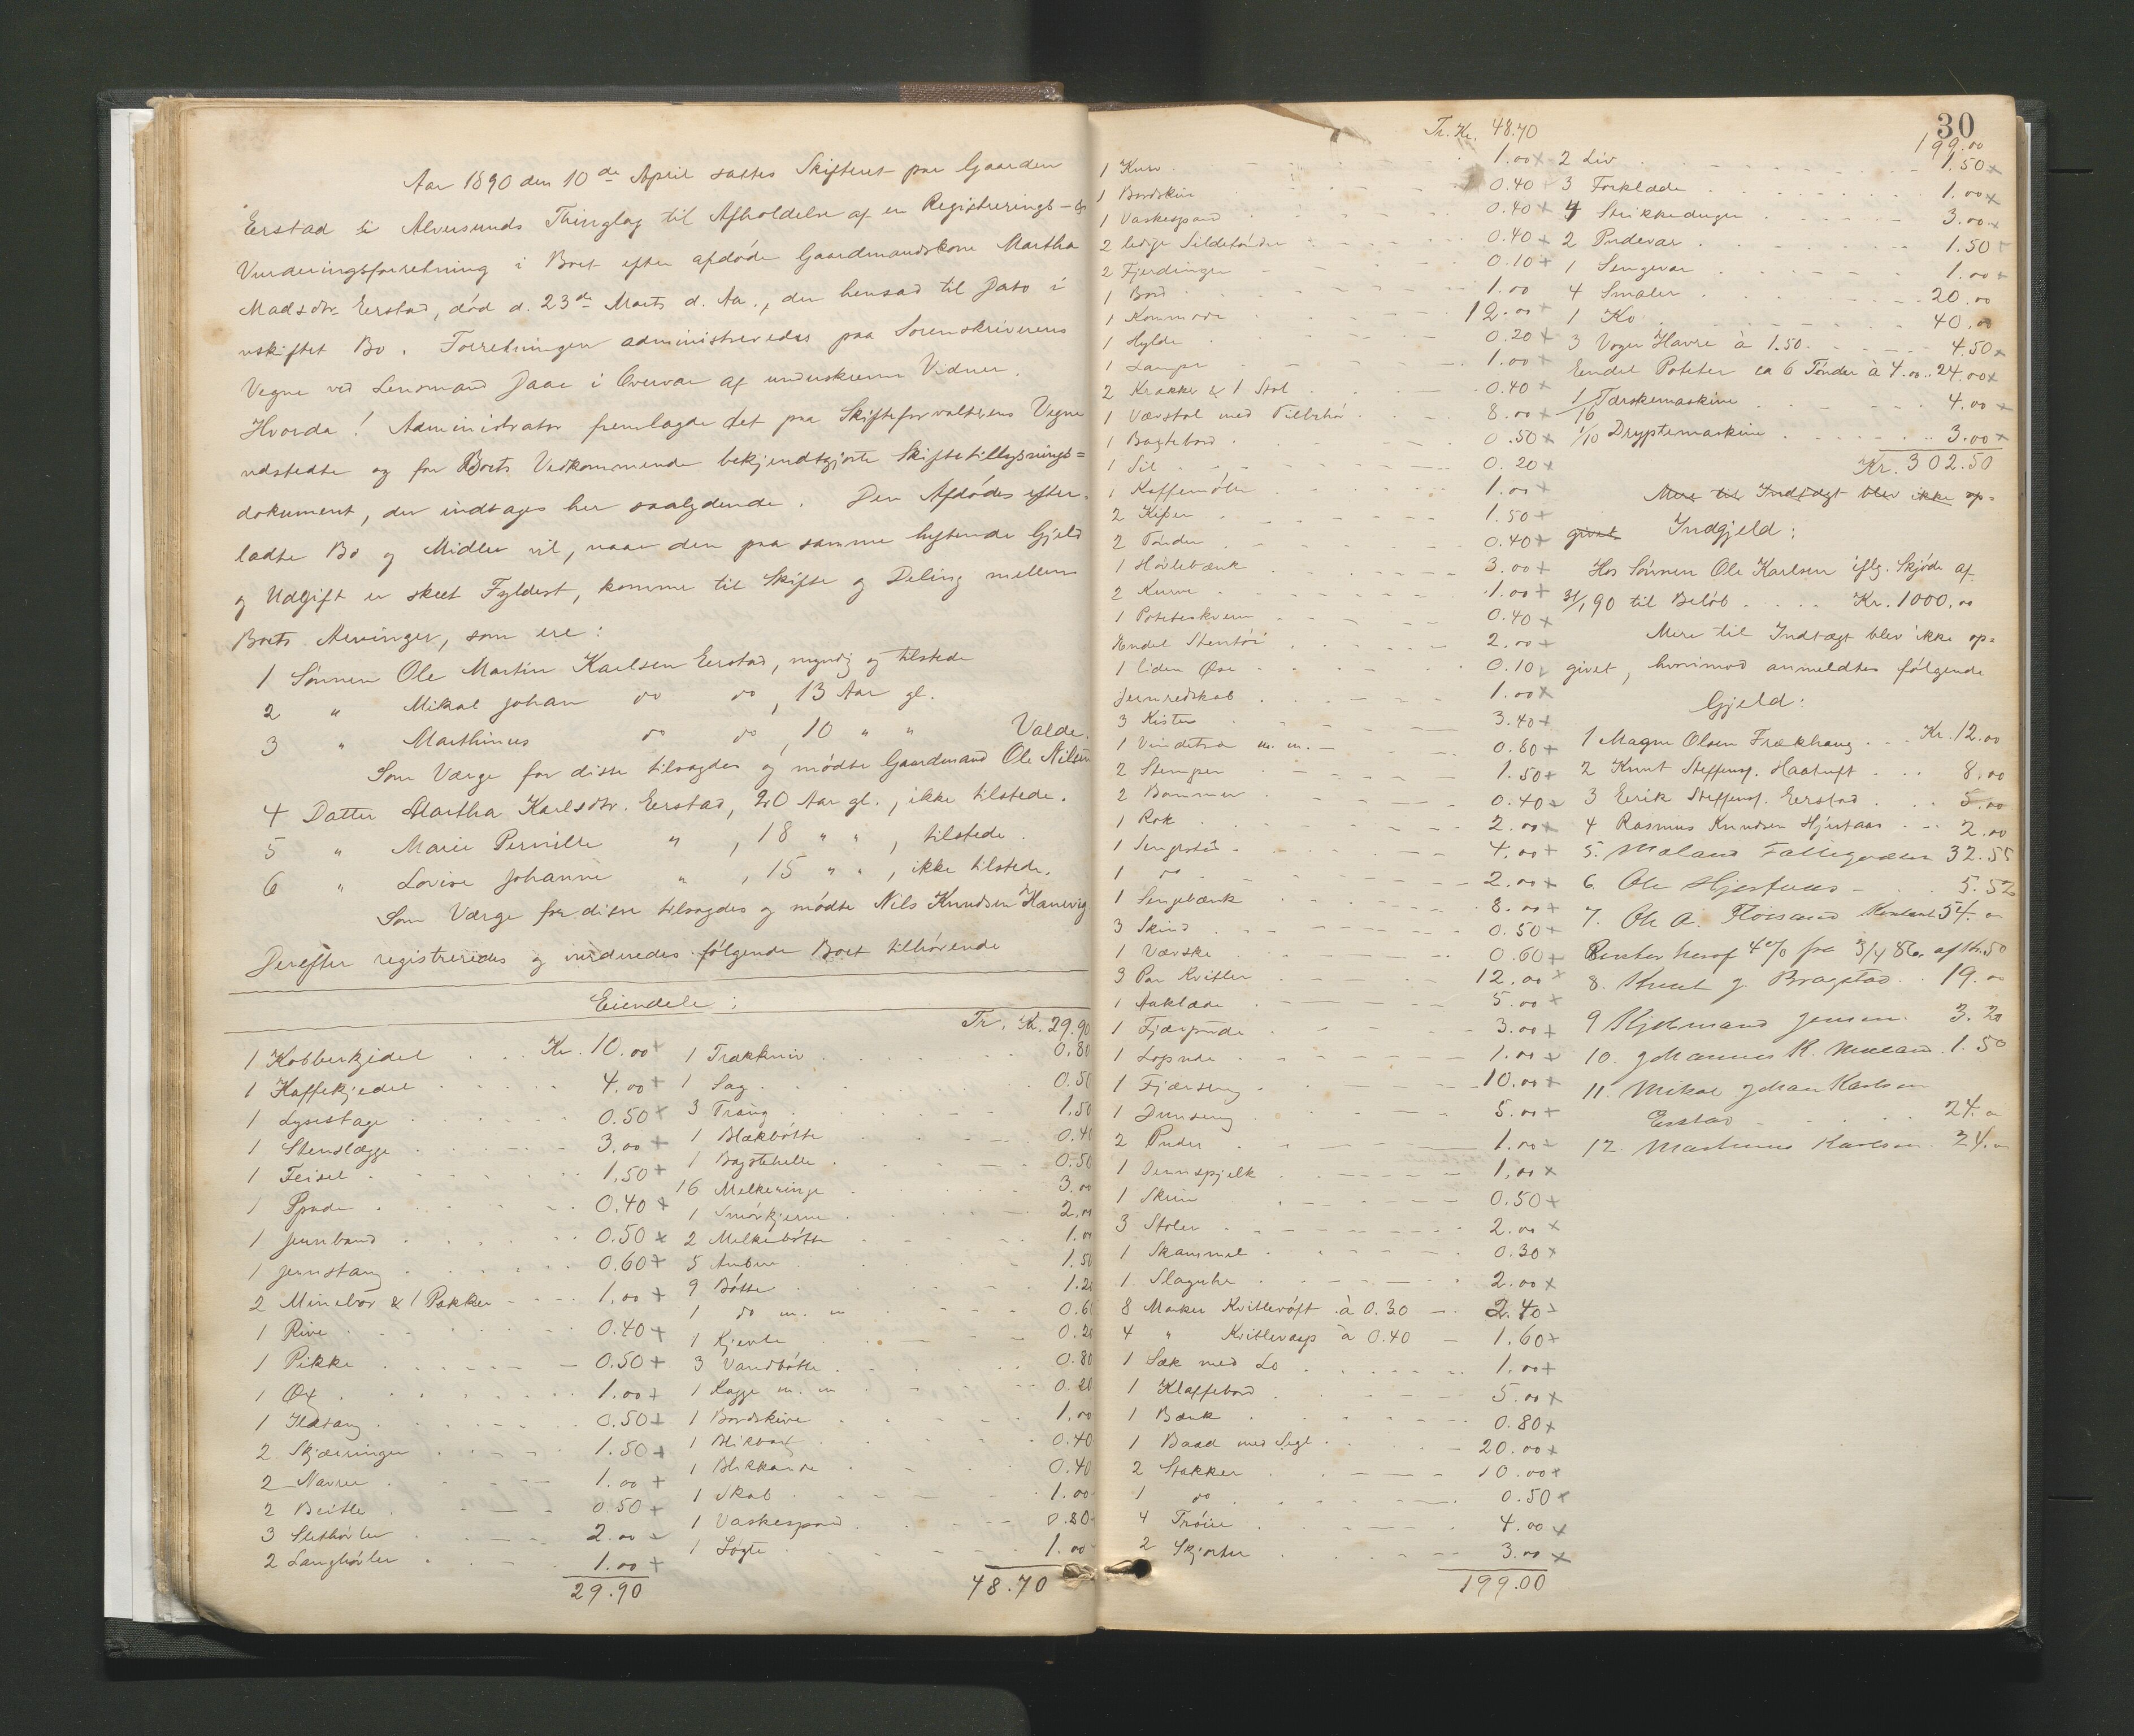 Aar 1890 den 10de April sattes Skifteret paa Gaarden
Eerstad i Alversunds Thinglag til Afholdelse af en Registrerings- &
Vurderingsforretning i Boet efter afdøde Gaardmandskone Martha
Madsdtr. Eerstad, død d. 23de Marts d. Aa., der hensad til Dato i
uskiftet Bo. Forretningen administreredes paa Sorenskriverens
Vegne ved Lensmand Daae i Overvær af underskrevne Vidner.
Hvorda! Administrator fremlagde det paa Skifteforvalterens Vegne
udstedte og for Boets Vedkommende bekjendtgjorte Skiftetillysnings=
dokument, der indtages her saalydende. Den Afdødes efter-
ladte Bo og Midler vil, naar den paa samme heftende Gjæld
og Udgift er skeet Fyldest, komme til Skifte og Deling mellem
Boets Arvinger, som ere:
1 Sønnen Ole Martin Karlsen Eerstad, myndig og tilstede
2 " Mikal Johan do do, 13 Aar gl.
3 " Marthinus do do, 10 " "
Som Værge for disse tilsagdes og mødte Gaardmand Ole Nilsen Valde.
4 Datter Martha Karlsdtr. Eerstad, 20 Aar gl., ikke tilstede.
5 " Marie Pernille " , 18 " " , tilstede.
6 " Lovise Johanne " , 15 " " , ikke tilstede.
Som Værge for disse tilsagdes og mødte Nils Knudsen Hanevig
Derefter registreredes og vurderedes følgende Boet tilhørende
Eiendele:
1 Kobberkjedel Kr. 10.00 +
1 Kaffekjedel 4.00 +
1 Lysestage 0.50 +
1 Stenslægge 3.00 +
1 Feisel 1.50 +
1 Spade 0.40 +
1 Jernband 0.50 +
1 Jernstang 0.60 +
2 Minebor & 1 Pakker 1.00 +
1 Rive 0.40 +
1 Pikke 0.50 +
1 Øx 1.00 +
1 Ildtang 0.50 +
2 Skjæringer 1.50 +
2 Navrer 1.00 +
2 Beitle 0.50 +
3 Sletthøvler 2.00
2 Langhøvler 1.00 +
29.90
Tr. Kr. 29.90
1 Trækkniv 0.80
1 Sag 0.50
3 Traug 1.50
1 Blækbøtte 0.40
1 Bagstehelle 0.50
16 Melkeringe 3.00
1 Smørkjerne 2.00
2 Melkebøtte 1.00
5 Ambar 1.50
9 Bøtte 1.20
1 do m. m 0.60
1 Kjevle 0.20
3 Vandbøtte 0.80
1 Kagge m. m 0.20
1 Bordskive 1.00
1 0.40
1 Blikkande 0.40
1 Skab 1.00
1 Vaskespand 0.80
1 Løgte 1.00
48.70
30
Tr. Kr. 48.70
1 Kurv 1.00 +
1 Bordskive 0.40
1 Vaskespand 0.40 +
2 ledige Sildetønder 0.40 +
2 Fjerdinger 0.10 +
1 Bord 1.00
1 Kommode 12.00 +
1 Hylde 0.20 +
1 Lampe 1.00 +
2 Krakker & 1 Stol 0.40 +
1 Vævstol med Tilbehør 8.00 +
1 Bagtebord 0.50 +
1 Sil 0.20 +
1 Kaffemølle 1.00 +
2 Kiper 1.50 +
2 Tønder 0.40 +
1 Høvlebænk 3.00 +
2 Kurve 1.00 +
1 Poteteskvern 0.40 +
Endel Stentøi 2.00 +
1 liden Øse 0.10
Jernredskab 1.00 +
3 Kister 3.40 +
1 Vindetræ m. m. 0.80 +
2 Stamper 1.50 +
2 Bommer 0.40
1 Rok 2.00 +
1 Sengested 4.00 +
1 do 2.00 +
1 Sengebænk 8.00 +
3 Skind 0.50 +
1 Værske 0.60 +
3 Par Kvitler 12.00 +
1 Aaklæde 5.00 +
1 Fjærpude 3.00 +
1 Lopude 1.00
1 Fjærseng 10.00 +
1 Dunseng 5.00 +
2 Puder 1.00
1 Ovnspjelk 1.00 +
1 Skrin 0.50 +
3 Stoler 2.00 +
1 Skammel 0.30 +
1 Slaguhr 2.00 +
8 Marker Kvitlevøft à 0.30 2.40
4 " Kvitlevarp à 0.40 1.60 +
1 Sæk med Lo 1.00 +
1 Klaffebord 5.00 +
1 Bænk 0.80 +
1 Baad med Segl 20.00 +
2 Stakker 10.00 +
1 do 0.50 +
4 Trøier 4.00 +
2 Skjorter 3.00 +
199.00
199.00
2 Liv 1.50 +
3 Forklæde 1.00 +
4 Strikkeduger 3.00
2 Pudevar 1.50
1 Sengevar 1.00 +
4 Smaler 20.00
1 Ko 40.00
3 Voger Havre à 1.50 4.50 +
Endel Poteter ca 6 Tønder à 4.00 24.00 +
1/16 Tærskemaskine 4.00
1/10 Dryptemaskine 3.00 +
Kr. 302.50
Mere til Indtægt blev ikke op=
givet Indgjeld:
Hos Sønnen Ole Karlsen iflg. Skjøde af
31/1 90 til Beløb Kr. 1000.00
Mere til Indtægt blev ikke op=
givet, hvorimod anmeldtes følgende
Gjeld:
1 Magne Olsen Frækhaug Kr. 12.00
2 Knut Steffens. Haatuft 8.00
3 Eerik Steffens. Eerstad 5.00
4 Rasmus Knudsen Hjertaas 2.00
5. 32.55
6. Ole Hjertaas 5.52
7. Ole A. Kontant 54.00
Renter heraf 4% fra 3/4 86 af
8. Knut J. Bragstad 19.00
9 Jensen 3.20
10. Johannes K. 1.50
11. Mikal Johan Karlsen
Erstad 24.00
12. Martinus Karlsen 24.00